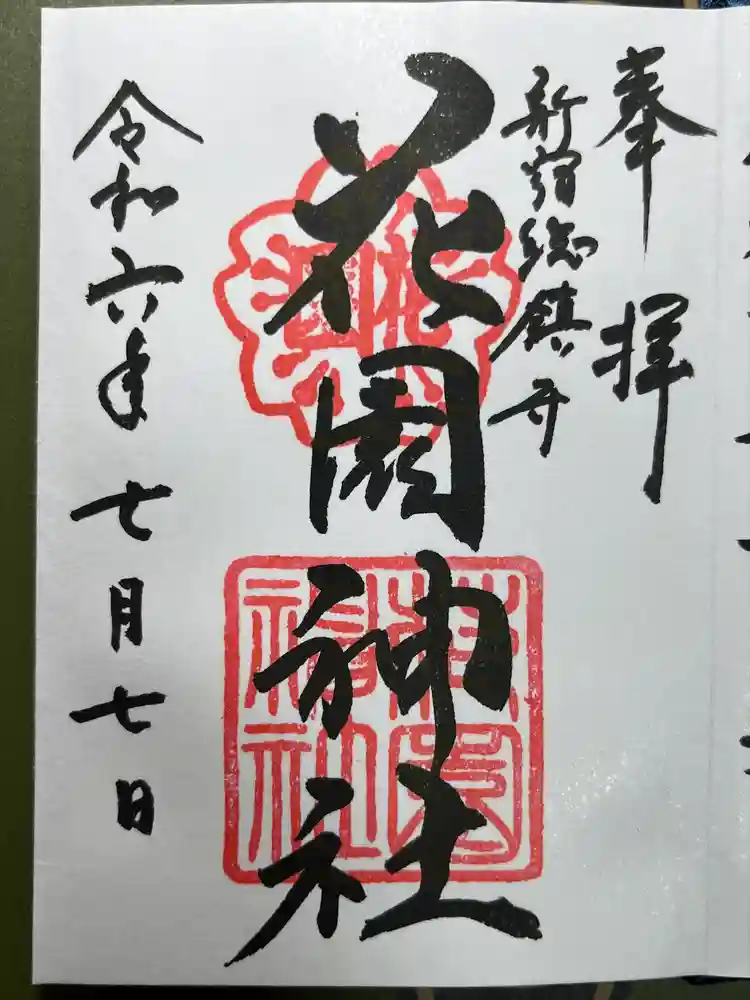 奉拝
新宿総鎮守
花園神社
花園
花園神社
令和六年七月七日